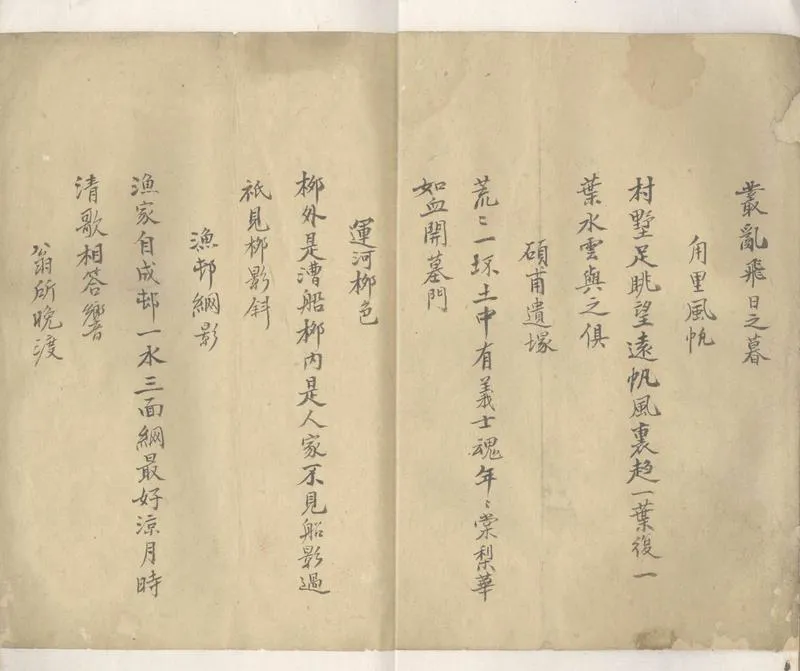 叢亂飛日之暮
甪里風帆
村墅足眺望遠帆風裏趋一葉復一
葉水雲與之俱
碩甫遺塚
荒〻一坏土中有義士魂年〻棠梨華
如血開墓門
運河柳色
柳外是漕船柳內是人家不見船影過
祇見柳影斜
漁邨網影
漁家自成邨一水三面網最好涼月時
清歌相答響
翁所晚渡